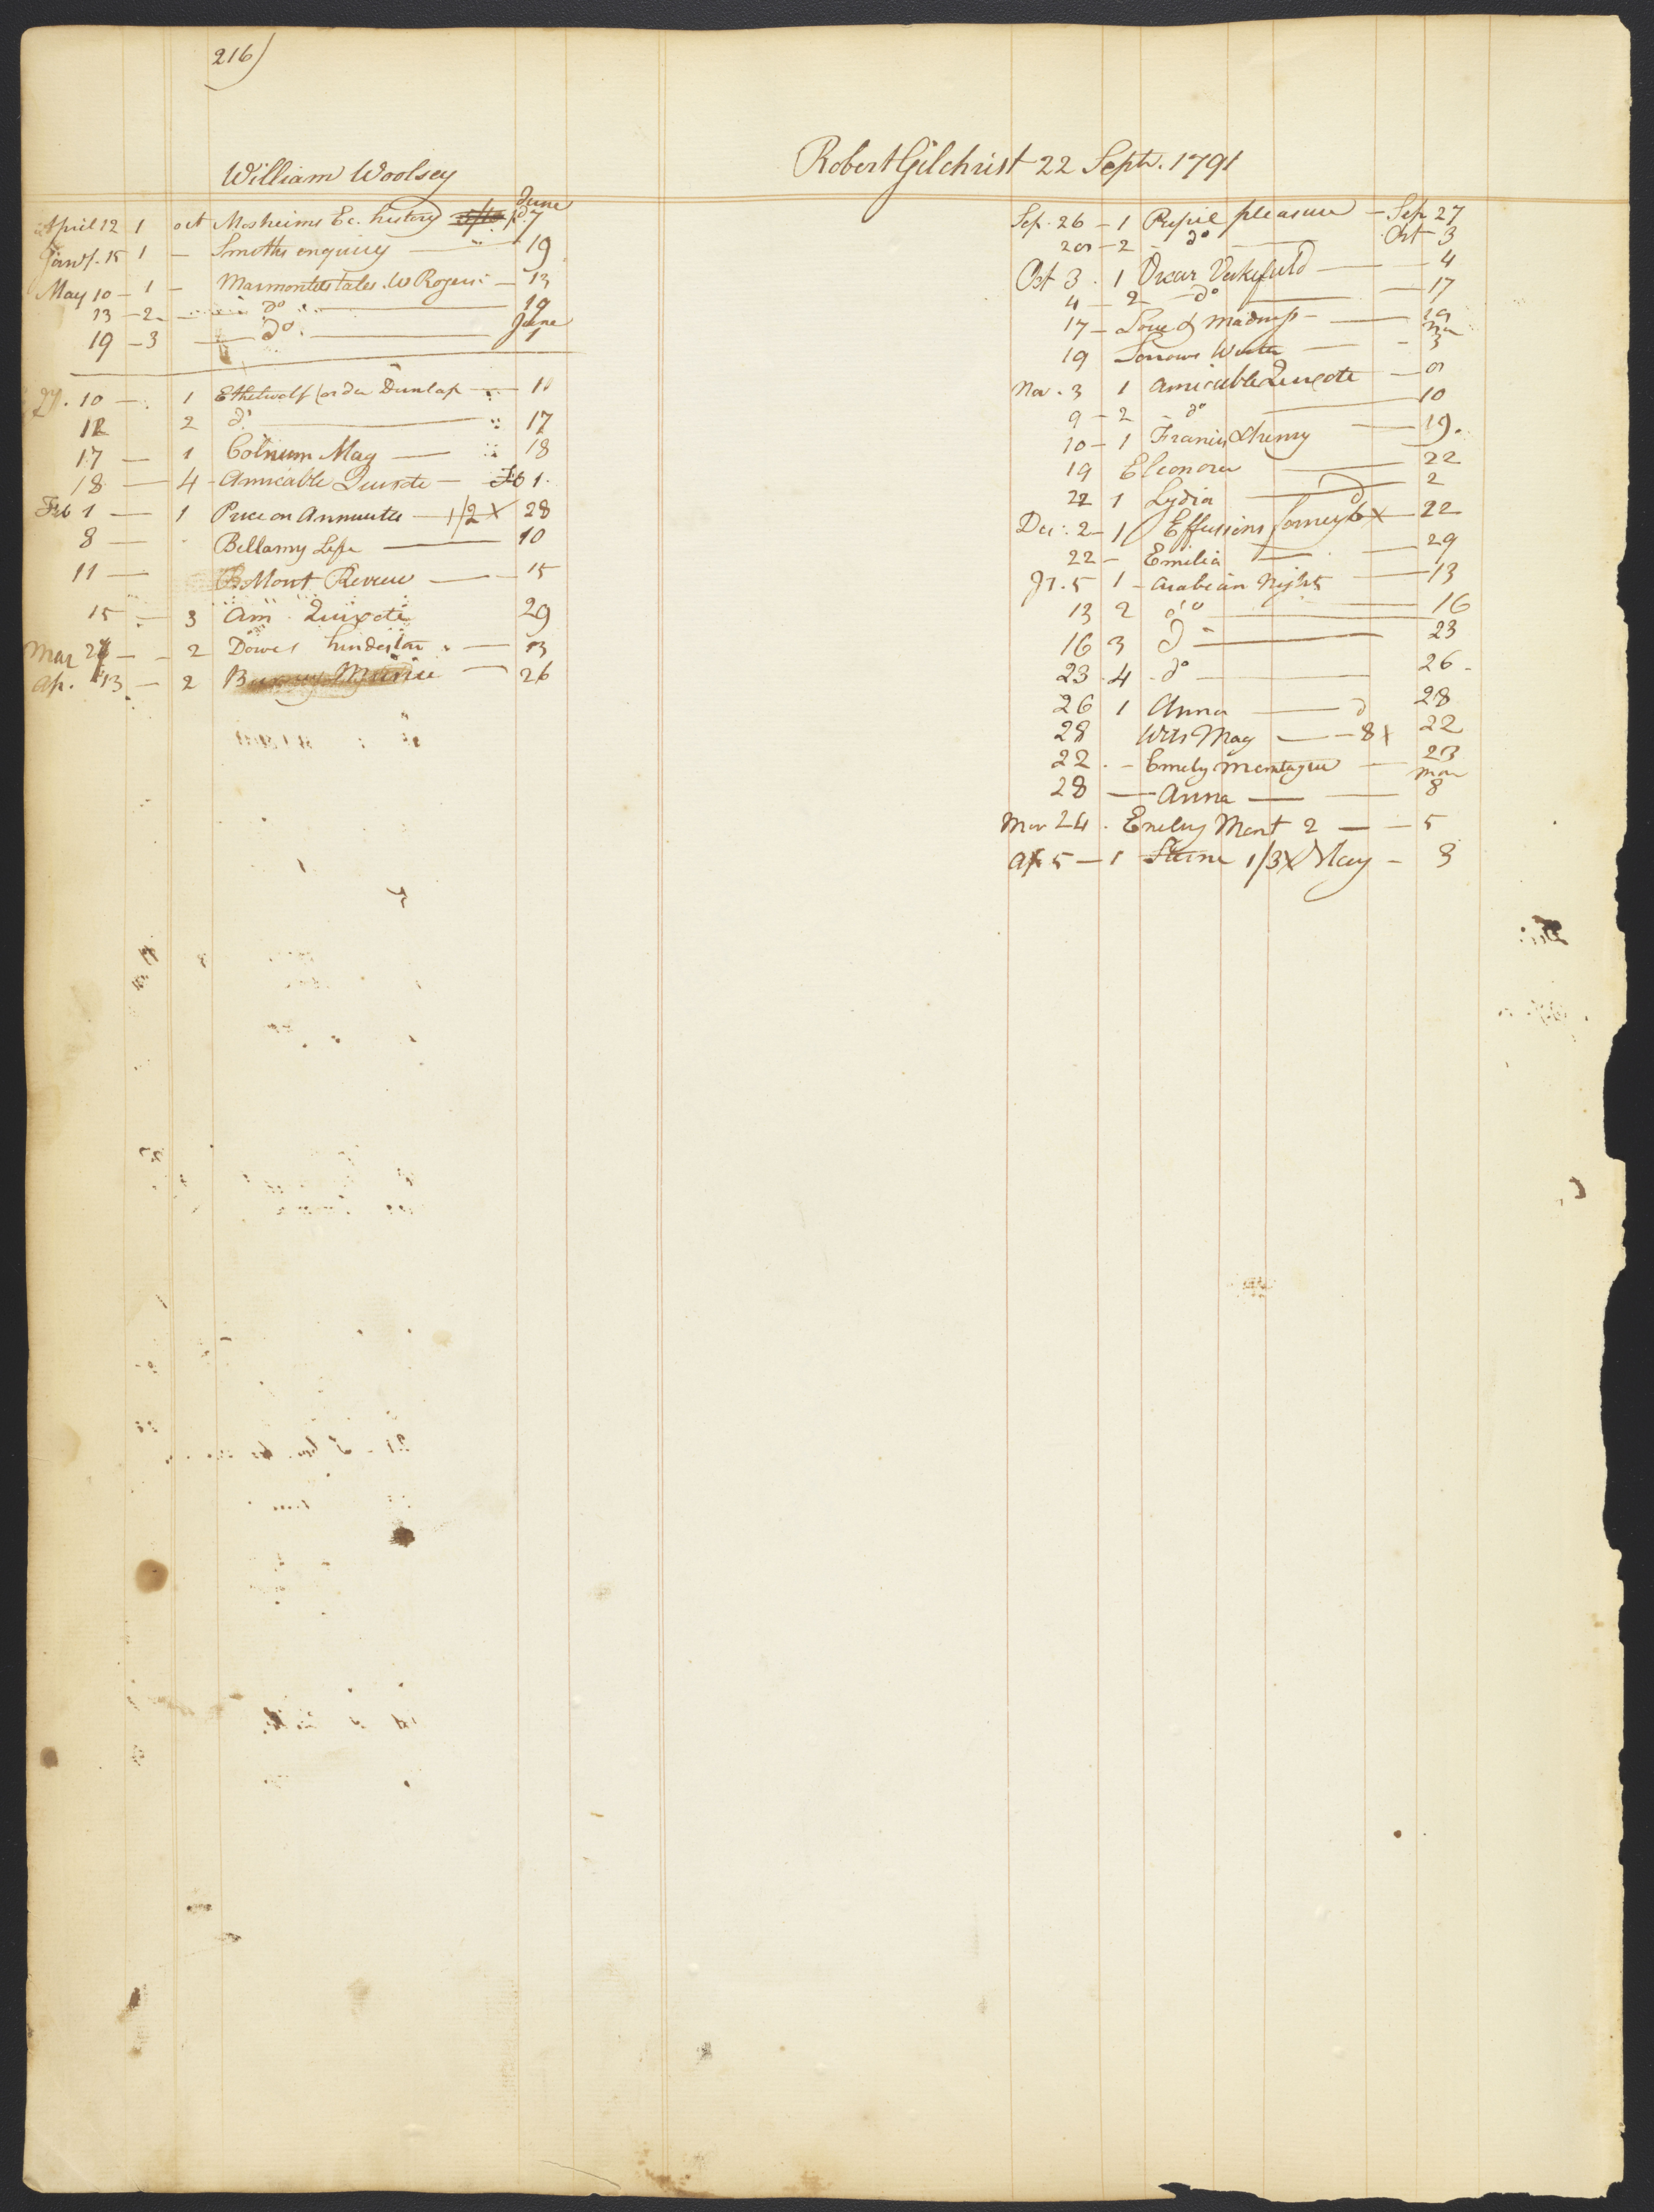 216)
William Woolsey
June
April 12 1 oct Mosheims Ec. history pd. 7
Jany. 15 1 — Smiths enquiry — 19
May 10 — 1 — Marmontels tales. W Rogers — 13
13 — 2 — do — 19
19 — 3 — do — June 7
10 — 1 Ethelwolf (order Dunlap — 11
12 2 do — 17
17 — 1 Colnum Mag — 18
18 — 4 — Amicable Quixote — Fb 1.
Feb 1 — 1 Price on Annuites — 1/2 X 28
8 — Bellamy Life — 10
11 — Mont Review — 15
15 — 3 Am Quixote 29
Mar 27 — 2 Dowes hindostan — 13
Ap. 13 — 2 — 26
Robert Gilchrist 22 Septr. 1791
Sep. 26 — 1 Pupil pleasure — Sep 27
28 — 2 — do — Oct 3
Oct 3 . 1 Vicar Wakefield — 4
4 — 2 — do — 17
17 — Love & Madness — 19
19 Sorrows Werter — Nov 3
Nov. 3 1 Amicable Quixote — 9
9 — 2 do — 10
10 — 1 Francis & henry — 19.
19 Eleonora — 22
22 1 Lydia — 2
Dec: 2 — 1 Effusions 6 X — 22
22 — Emilia — 29
Jy. 5 1 — Arabian Nights — 13
13 2 do — 16
16 3 do — 23
23 . 4 . do — 26 -
26 1 Anna — 28
28 Wits Mag — 8 X 22
22 . — Emely Montague — 23
28 — Anna — Mar 8
Mar 24 . Emely Mont 2 — 5
Ap 5 — 1 Sterne 1/3 X May — 3